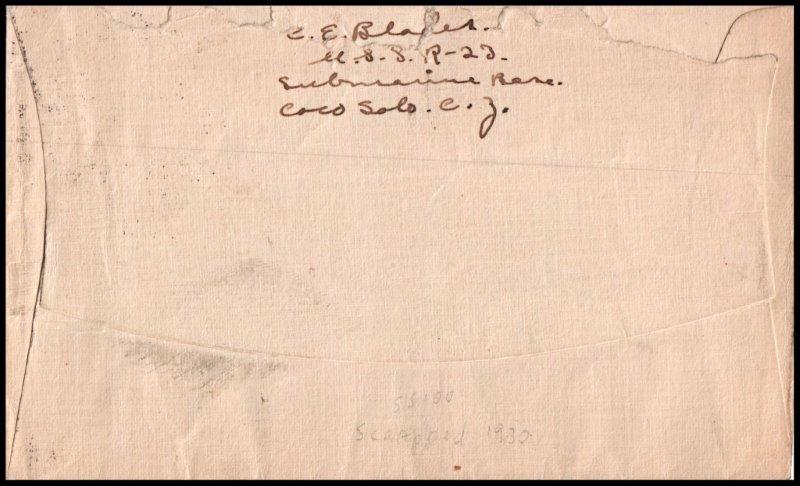 C. E. Blades.
U.S.S. R-23.
Submarine Base.
Coco Solo. C. Z.
SS100
Scrapped 1930